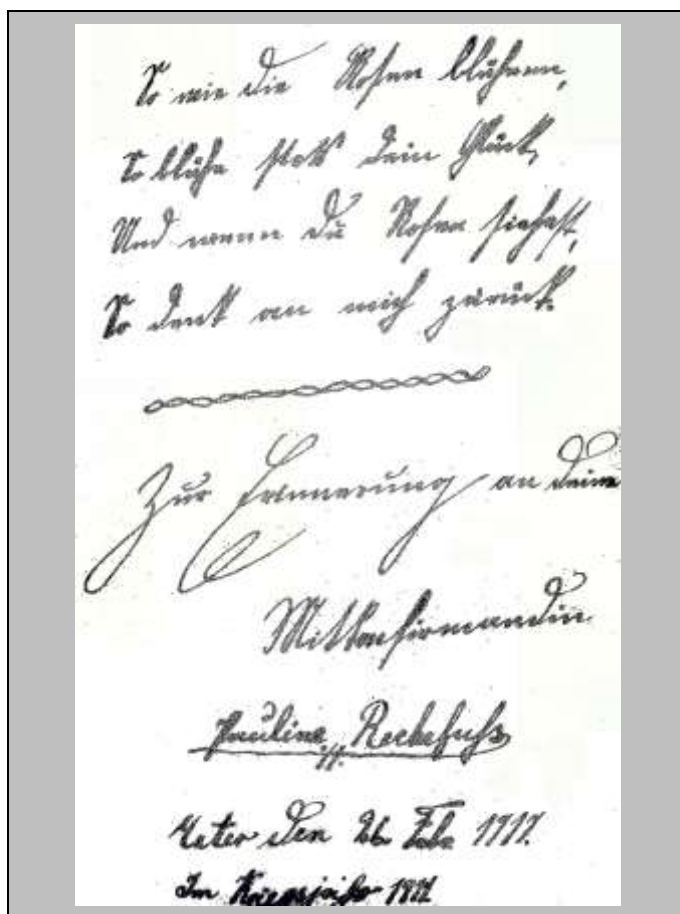 So wie die Rosen blühen,
So blühe stets dein Glück,
Und wenn du Rosen siehest,
So denk an mich zurück.
Zur Erinnerung an deine
Mitkonfirmandin
Pauline
Exter den 26. Febr 1917.
Im Kriegsjahr 1917